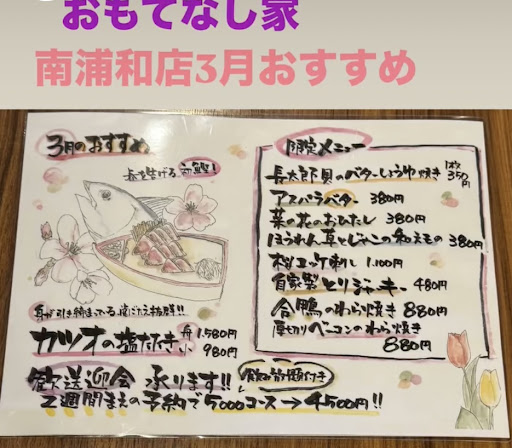 おもてなし家
南浦和店3月おすすめ
3月のおすすめ
春を告げる初鰹!
身が引き締まってる歯ごたえ抜群!!
カツオの塩たたき 舟1.580円
小 980円
歓送迎会 承ります!! 飲み放題付き
2週間まえの予約で5000コース→4500円!!
限定メニュー
長太郎貝のバターしょうゆ焼き 1枚350円
アスパラバター 380円
菜の花のおひたし 380円
ほうれん草とじゃこの和えもの 380円
桜ユッケ刺し 1.100円
自家製とりジャーキー 480円
合鴨のわら焼き 880円
厚切りベーコンのわら焼き
880円